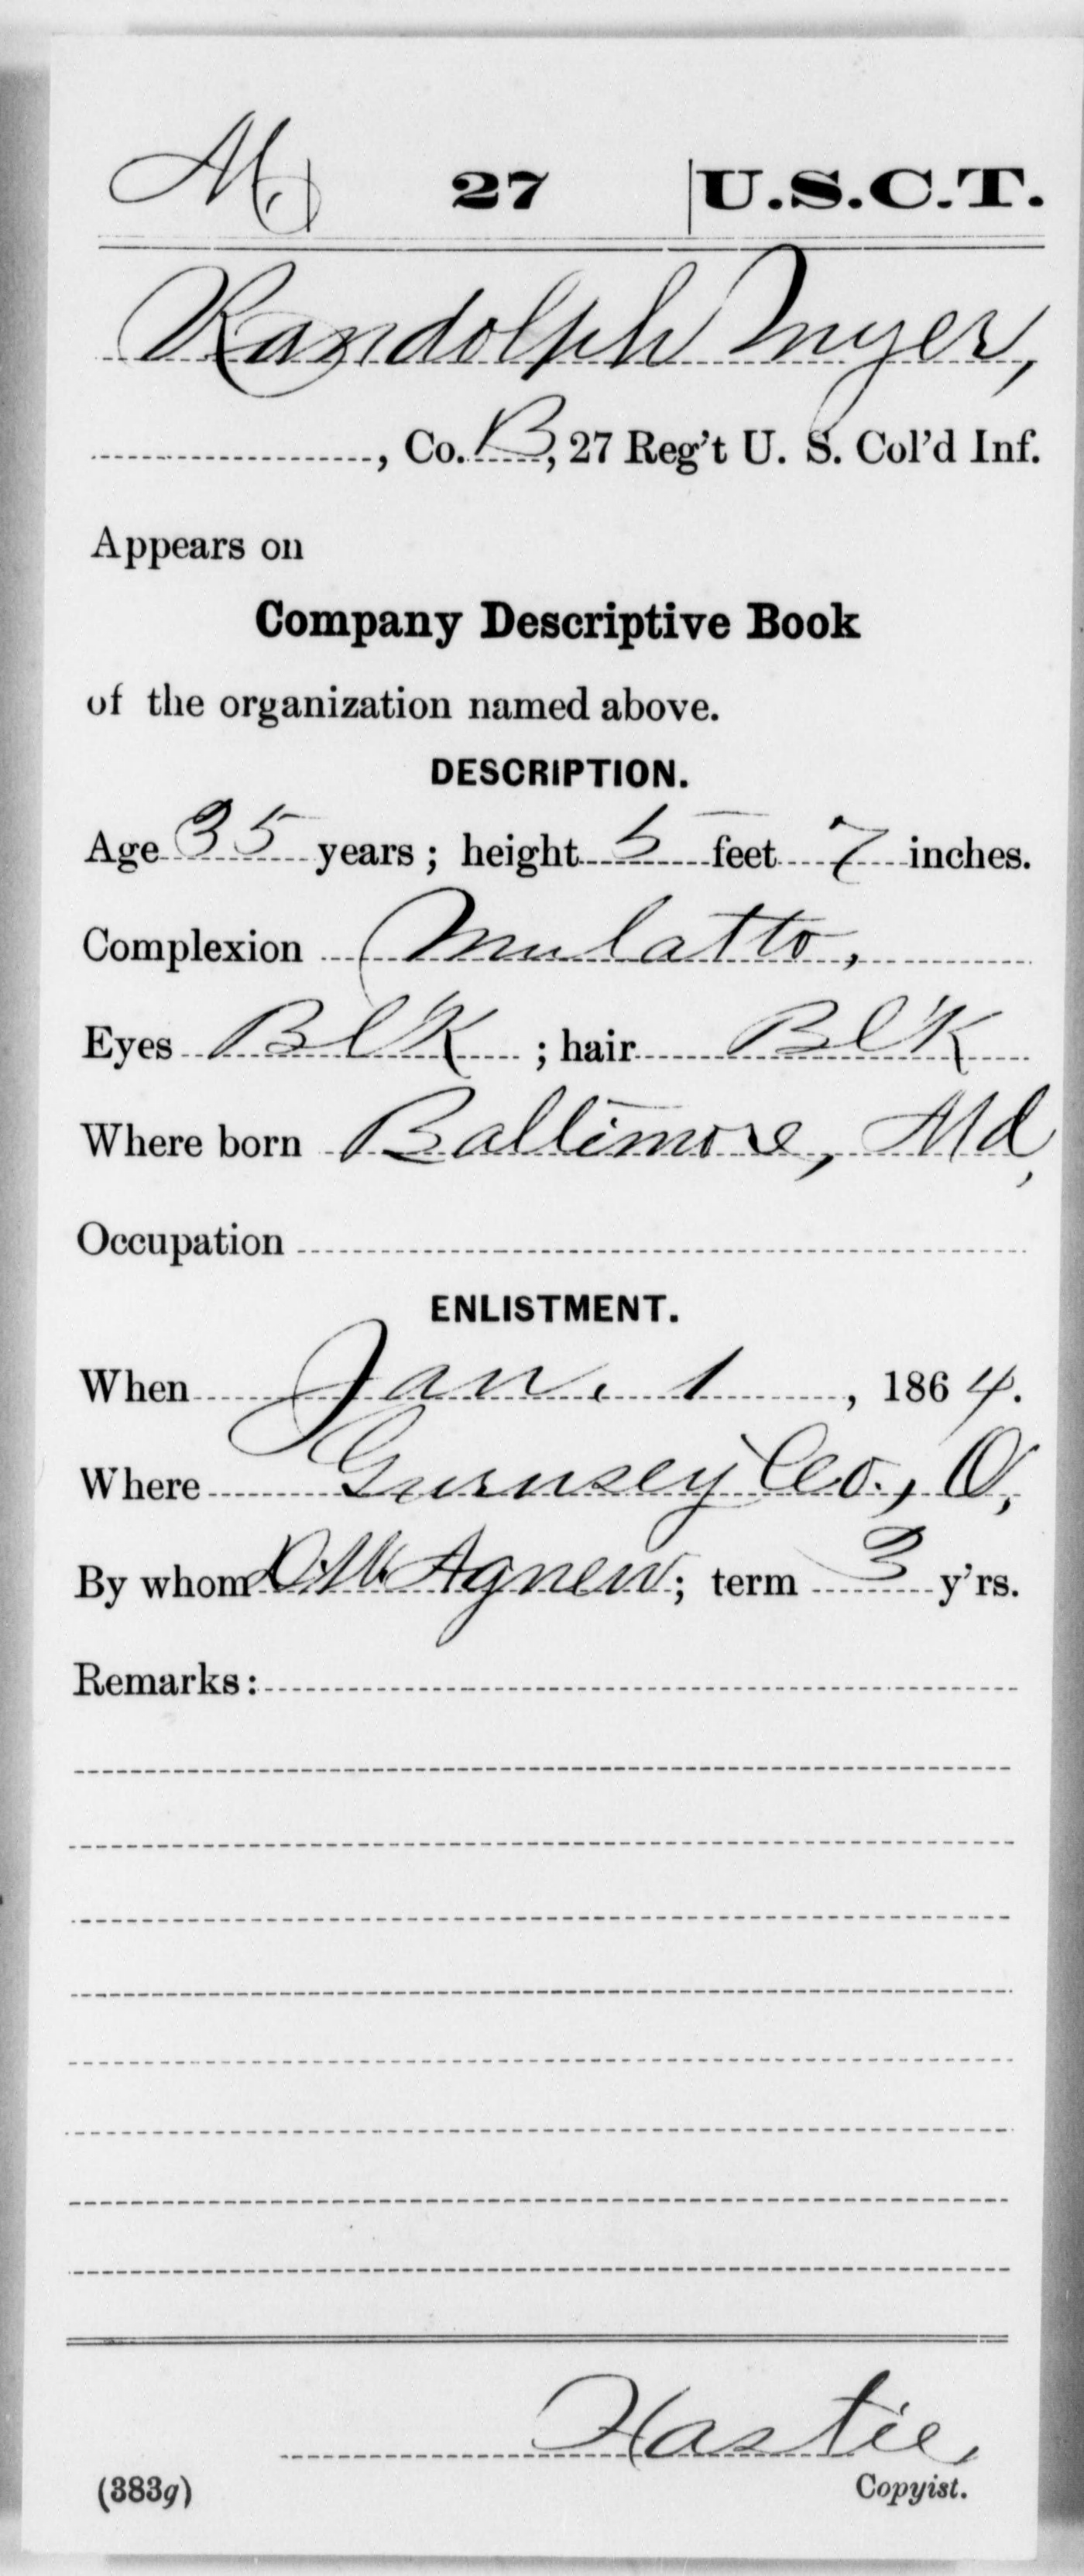 M | 27 | U.S.C.T.
Randolph Myer,
, Co. B, 27 Reg't U. S. Col'd Inf.
Appears on
Company Descriptive Book
of the organization named above.
DESCRIPTION.
Age 35 years; height 5 feet 7 inches.
Complexion Mulatto,
Eyes Blk ; hair Blk
Where born Baltimore, Md,
Occupation
ENLISTMENT.
When Jan. 1, 1864.
Where Gurnsey Co., O,
By whom Agnew; term 3 y'rs.
Remarks:
Hastie,
(383g) Copyist.